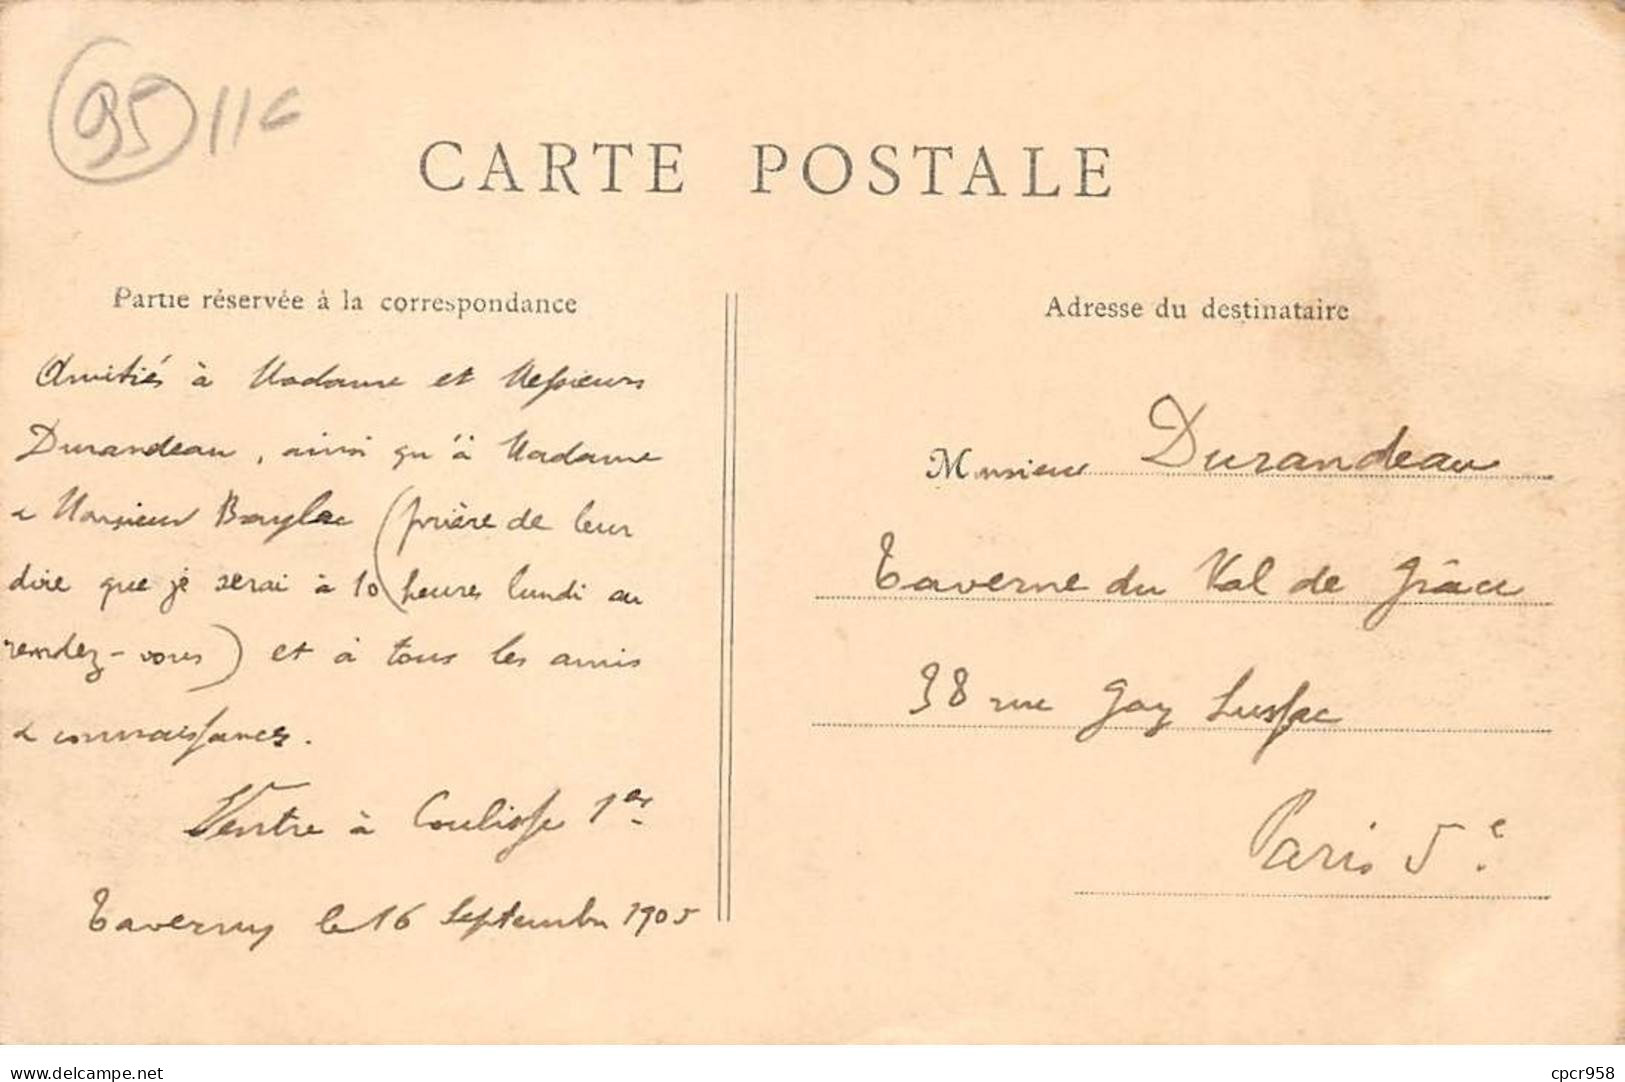 95 116
CARTE POSTALE
Partie réservée à la correspondance
Amitiés à Madame et Messieurs
Durandeau, ainsi qu'à Madame
& Monsieur Baylac (prière de leur
dire que je serai à 10 heures lundi au
rendez-vous) et à tous les amis
& connaissances.
Ventre à Coulisse 1er
Taverny le 16 Septembre 1905
Adresse du destinataire
Monsieur Durandeau
Taverne du Val de Grâce
38 rue Gay Lussac
Paris 5e
www.delcampe.net
cpcr958